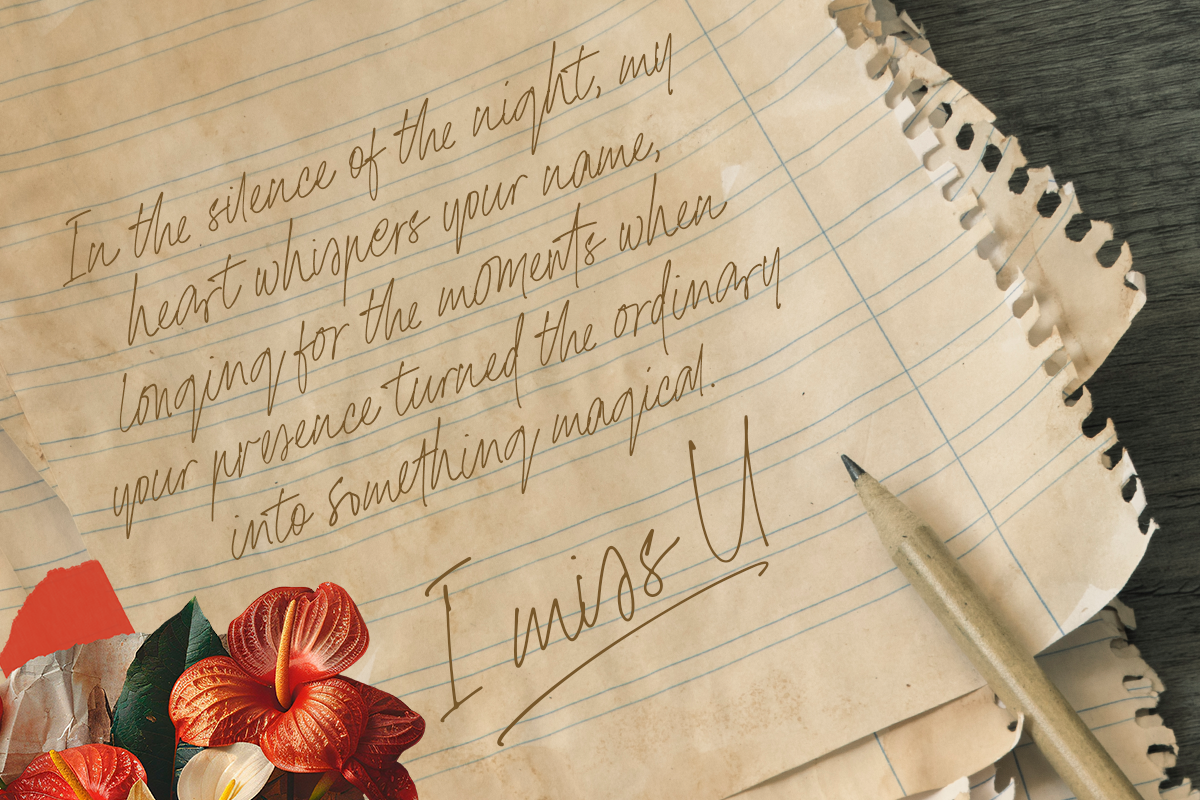 In the silence of the night, my
heart whispers your name,
longing for the moments when
your presence turned the ordinary
into something magical.
I miss U